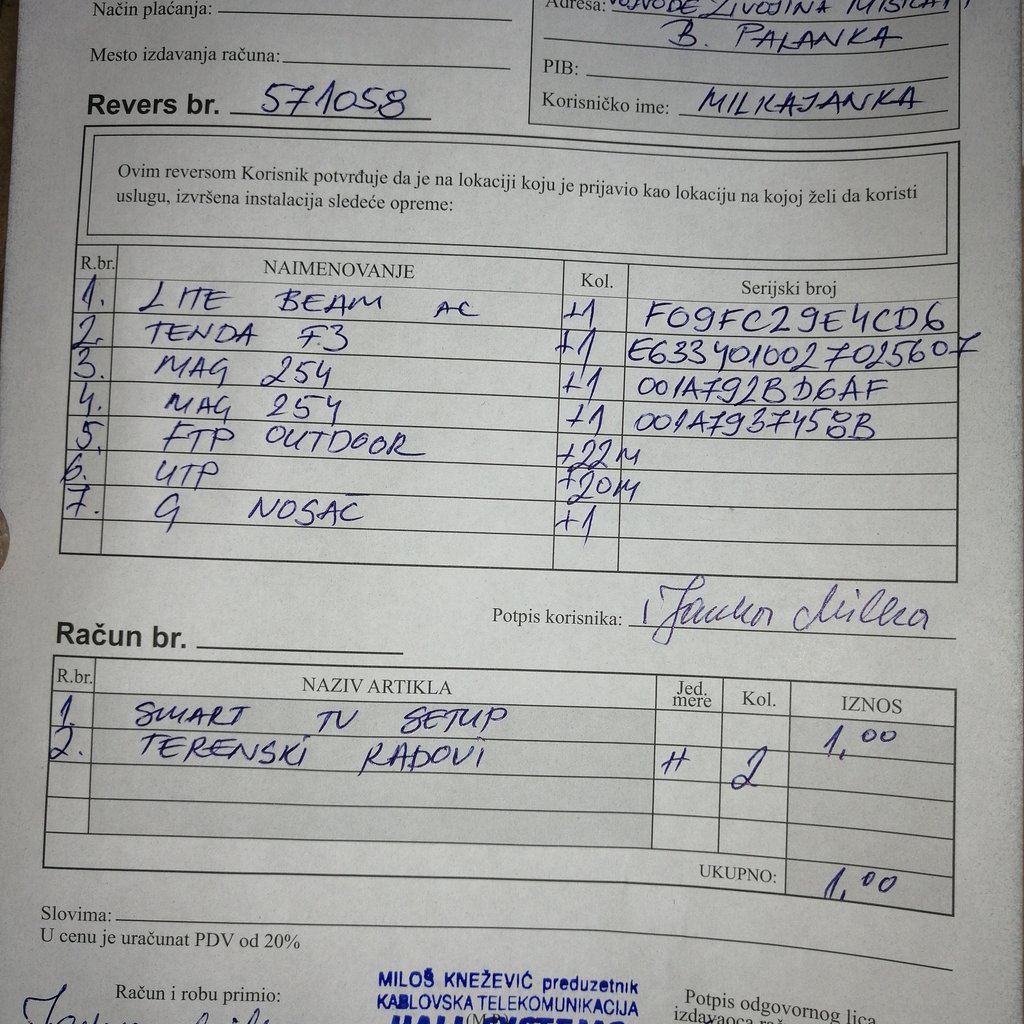 Način plaćanja:
Adresa: VOJVODE ŽIVOJINA MIŠIĆA
B. PALANKA
Mesto izdavanja računa:
PIB:
Revers br. 571058
Korisničko ime: MILKAJANKA
Ovim reversom Korisnik potvrđuje da je na lokaciji koju je prijavio kao lokaciju na kojoj želi da koristi
uslugu, izvršena instalacija sledeće opreme:
R.br. NAIMENOVANJE Kol. Serijski broj
1. LITE BEAM AC +1 F09FC29E4CD6
2. TENDA F3 +1 E6334010027025607
3. MAG 254 +1 001A792BD6AF
4. MAG 254 +1 001A7937458B
5. FTP OUTDOOR +22M
6. UTP +20M
7. G NOSAČ +1
Potpis korisnika: Janka Milka
Račun br.
R.br. NAZIV ARTIKLA Jed. mere Kol. IZNOS
1. SMART TV SETUP 1,00
2. TERENSKI RADOVI H 2
UKUPNO: 1,00
Slovima:
U cenu je uračunat PDV od 20%
Račun i robu primio:
MILOŠ KNEŽEVIĆ preduzetnik
KABLOVSKA TELEKOMUNIKACIJA
(M.P.)
Potpis odgovornog lica